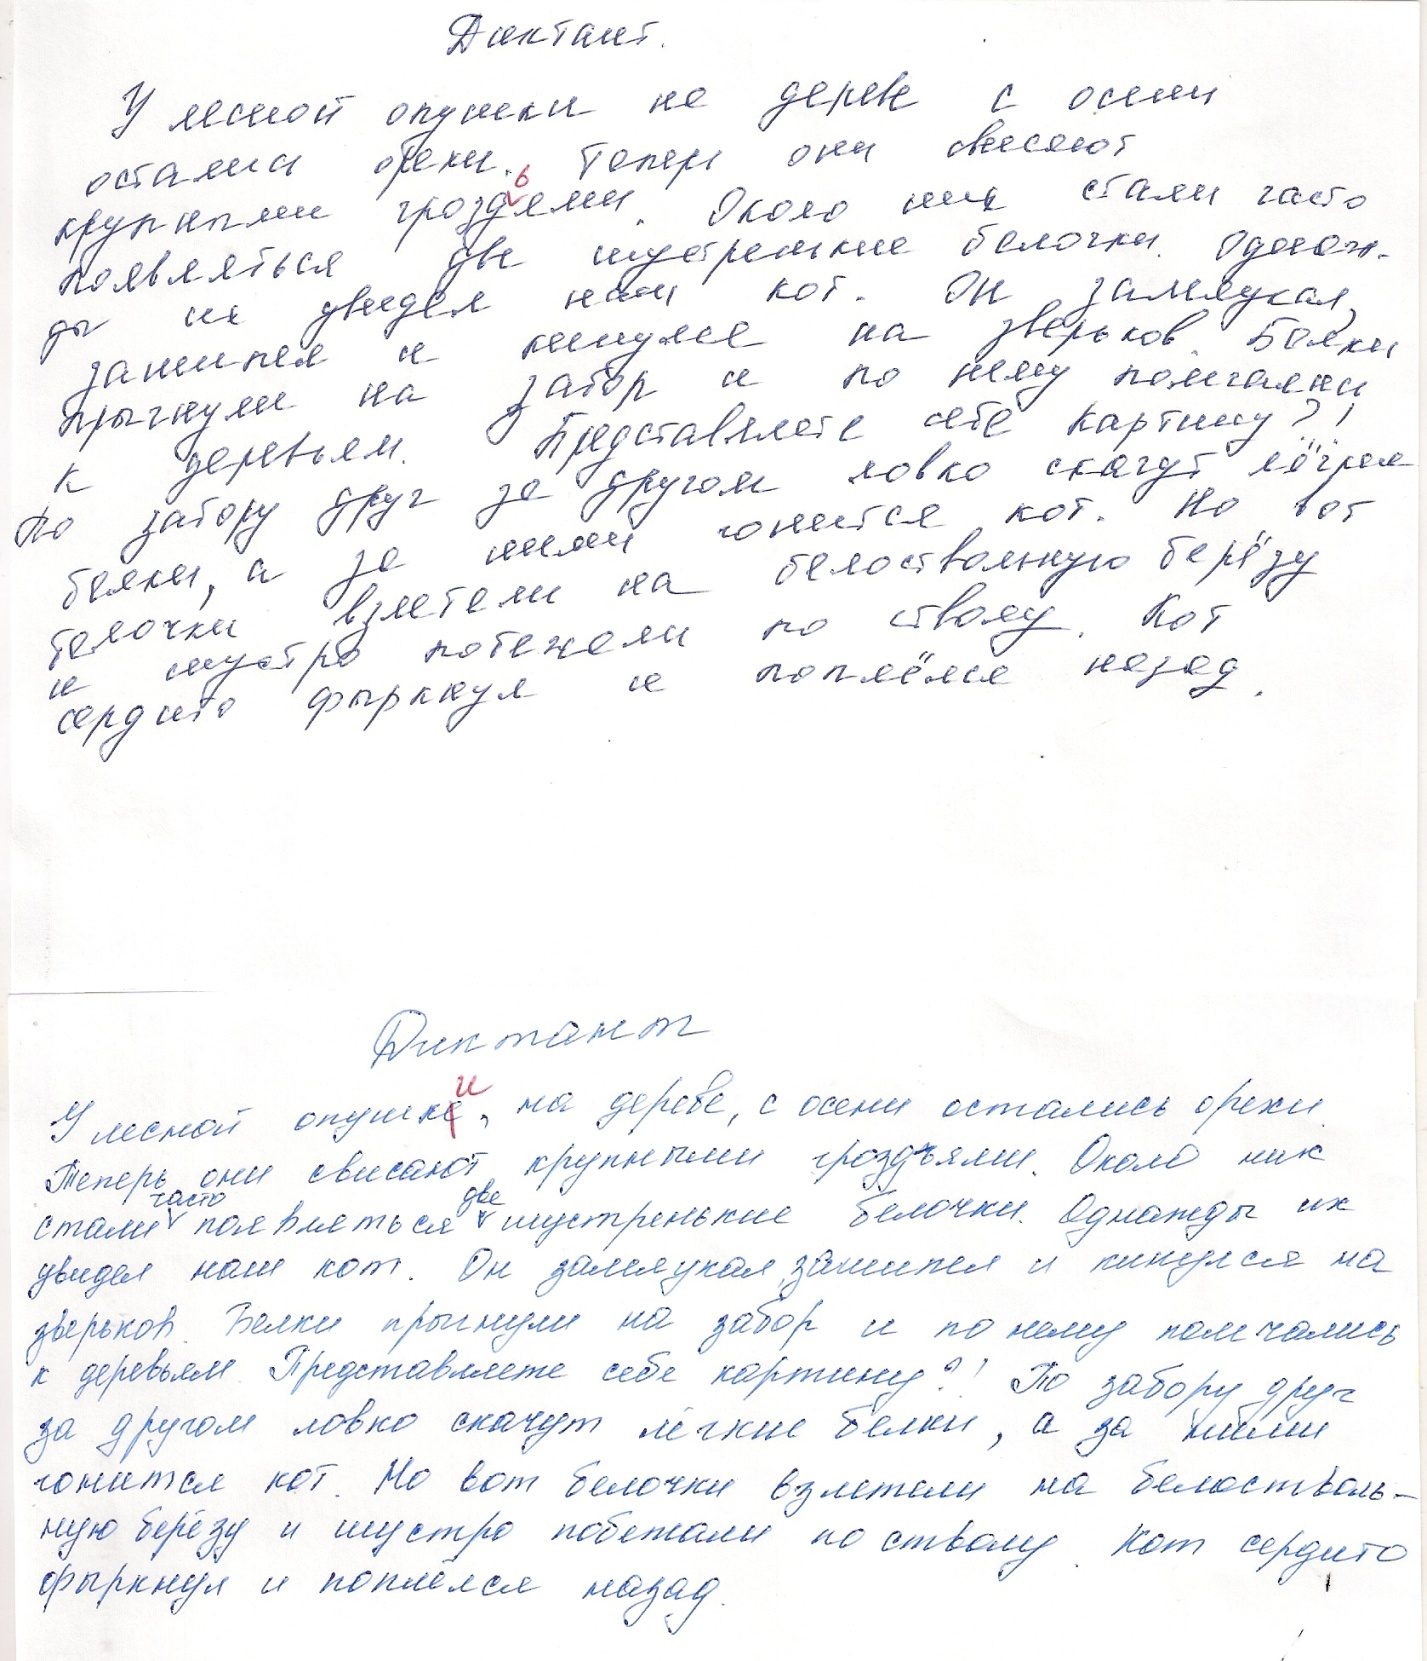 Диктант.
У лесной опушки на дереве с осени
остались орехи. Теперь они свисают
крупными гроздьями. Около них стали часто
появляться две шустренькие белочки. Однаж-
ды их увидел наш кот. Он замяукал,
зашипел и кинулся на зверьков. Белки
прыгнули на забор и по нему помчались
к деревьям. Представляете себе картину?!
По забору друг за другом ловко скачут лёгкие
белки, а за ними гонится кот. Но вот
белочки взлетели на белоствольную берёзу
и шустро побежали по стволу. Кот
сердито фыркнул и поплёлся назад.
Диктант
У лесной опушки, на дереве, с осени остались орехи.
Теперь они свисают крупными гроздъями. Около них
стали часто появляться две шустренькие белочки. Однажды их
увидел наш кот. Он замяукал, зашипел и кинулся на
зверьков. Белки прыгнули на забор и по нему помчались
к деревьям. Представляете себе картину?! По забору друг
за другом ловко скачут лёгкие белки, а за ними
гонится кот. Но вот белочки взлетели на белостволь-
ную берёзу и шустро побежали по стволу. Кот сердито
фыркнул и поплёлся назад.